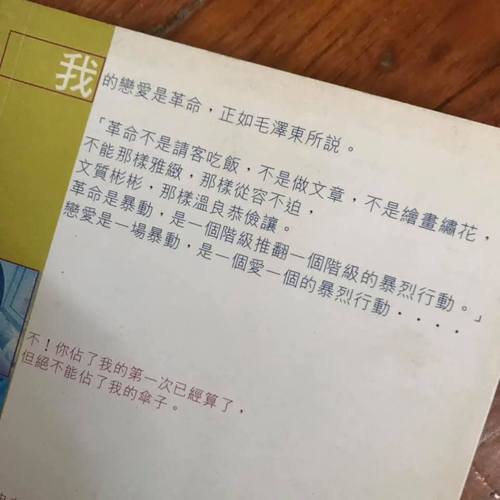 我的戀愛是革命，正如毛澤東所說。
「革命不是請客吃飯，不是做文章，不是繪畫繡花，
不能那樣雅緻，那樣從容不迫，
文質彬彬，那樣溫良恭儉讓。
革命是暴動，是一個階級推翻一個階級的暴烈行動。」
戀愛是一場暴動，是一個愛一個的暴烈行動．．．．
不！你佔了我的第一次已經算了，
但絕不能佔了我的傘子。